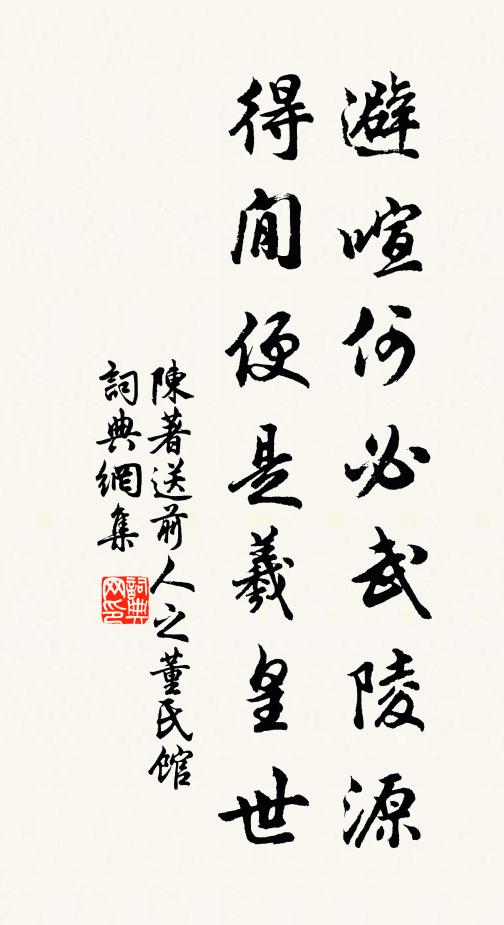 避喧何必武陵源
得閒便是羲皇世
陳著送前人之董氏館
詞典網集
詞典
网印